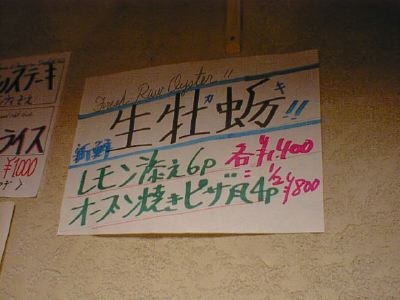 Fresh Raw Oyster!!
生牡蛎!!
ガキ
新鮮
レモン添え6p
¥1,400
1/2
オーブン焼きピザ風4p
¥800
ステーキ
ライス
¥1000